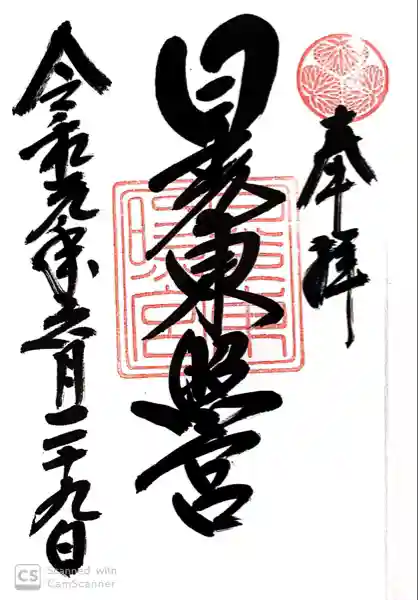 奉拝
日 東照宮
令和元年六月二十九日
Scanned with
CamScanner
CS